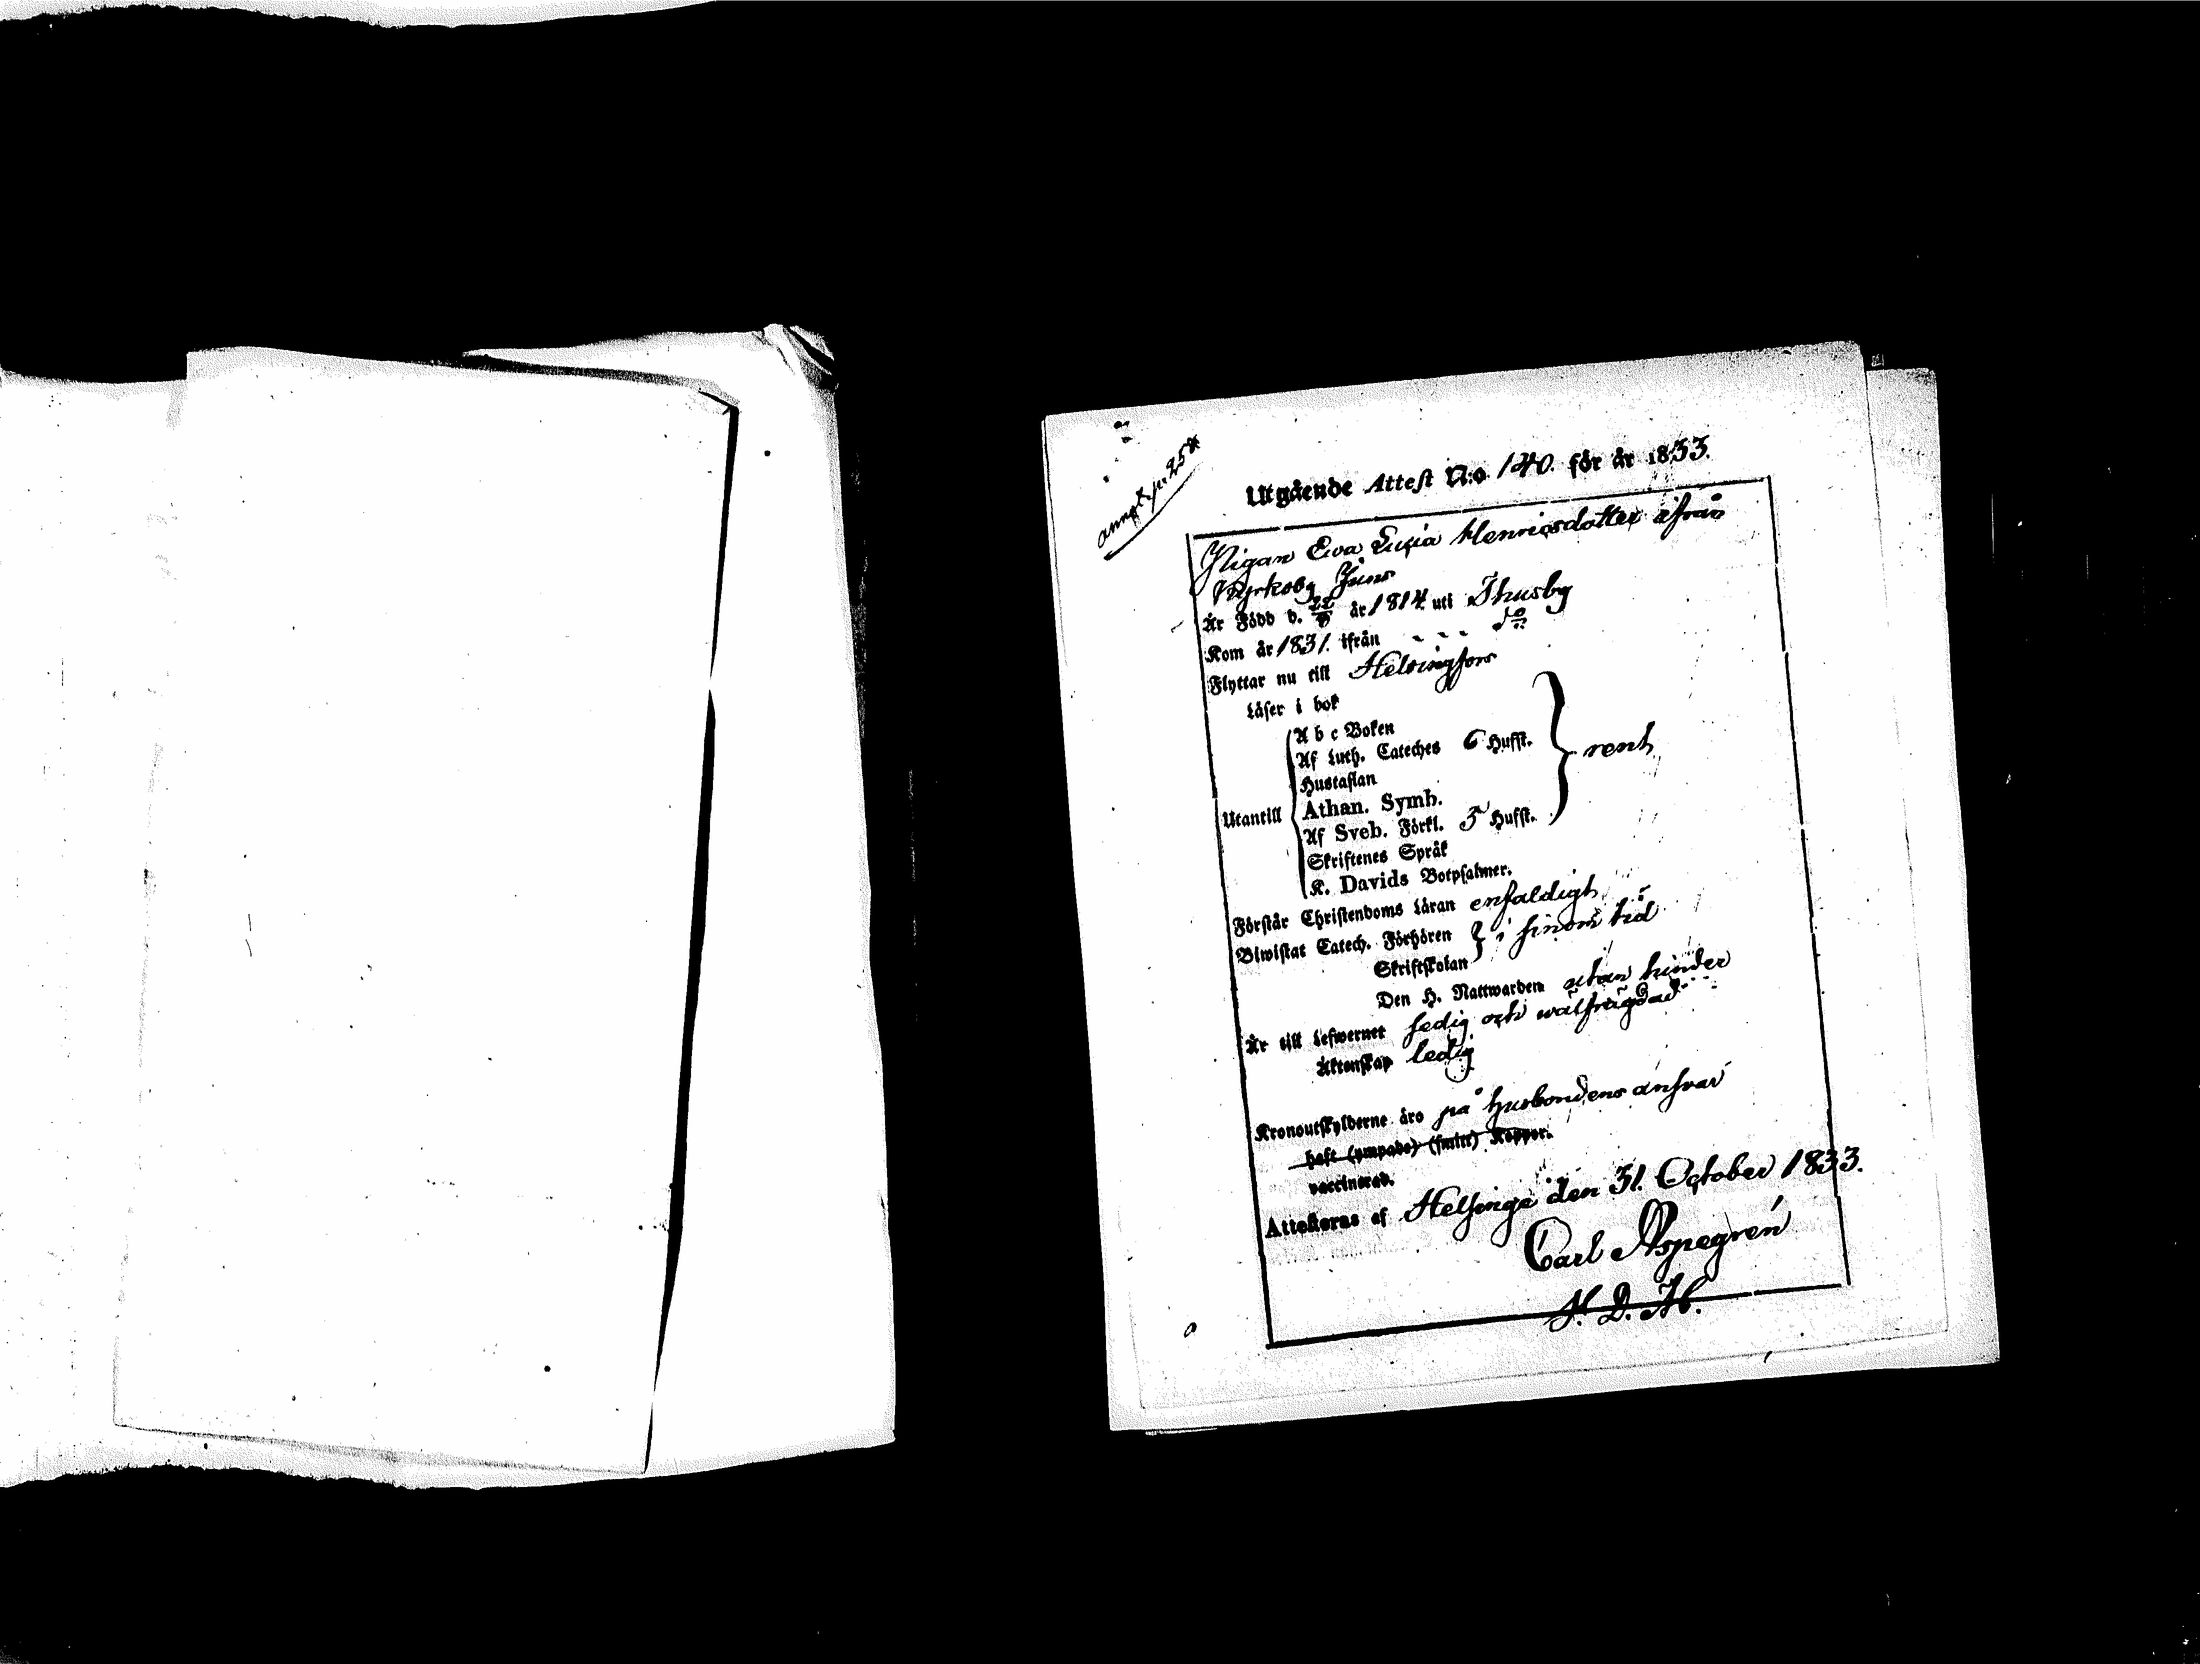 Utgående Attest N:o 140. för år 1833.
Pigan Eva Lucia Henricsdotter ifrån
Kyrkoby Juns
Är Född d. 22 år 1814. uti Thusby
Kom år 1831. ifrån - - - do
Flyttar nu till Helsingfors
Läser i bok
A b c Boken
Af Luth. Cateches 6 Hufst.
Hustaflan
rent
Utantill
Athan. Symb.
Af Sveb. Förkl. 5 Hufst.
Skriftenes Språk
K. Davids Botpsalmer.
Förstår Christendoms Läran enfaldigt
Biwistat Catech. Förhören i sinom tid
Skriftskolan
Den H. Nattwarden utan hinder
Är till Lefwernet sedig och wälfrägdad
Äktenskap ledig
Kronoutskylderne äro på husbondens ansvar
haft (ympade) (smitt) Koppor.
vaccinerad.
Attesteras af Helsinge den 31. October 1833.
Carl Aspegrén